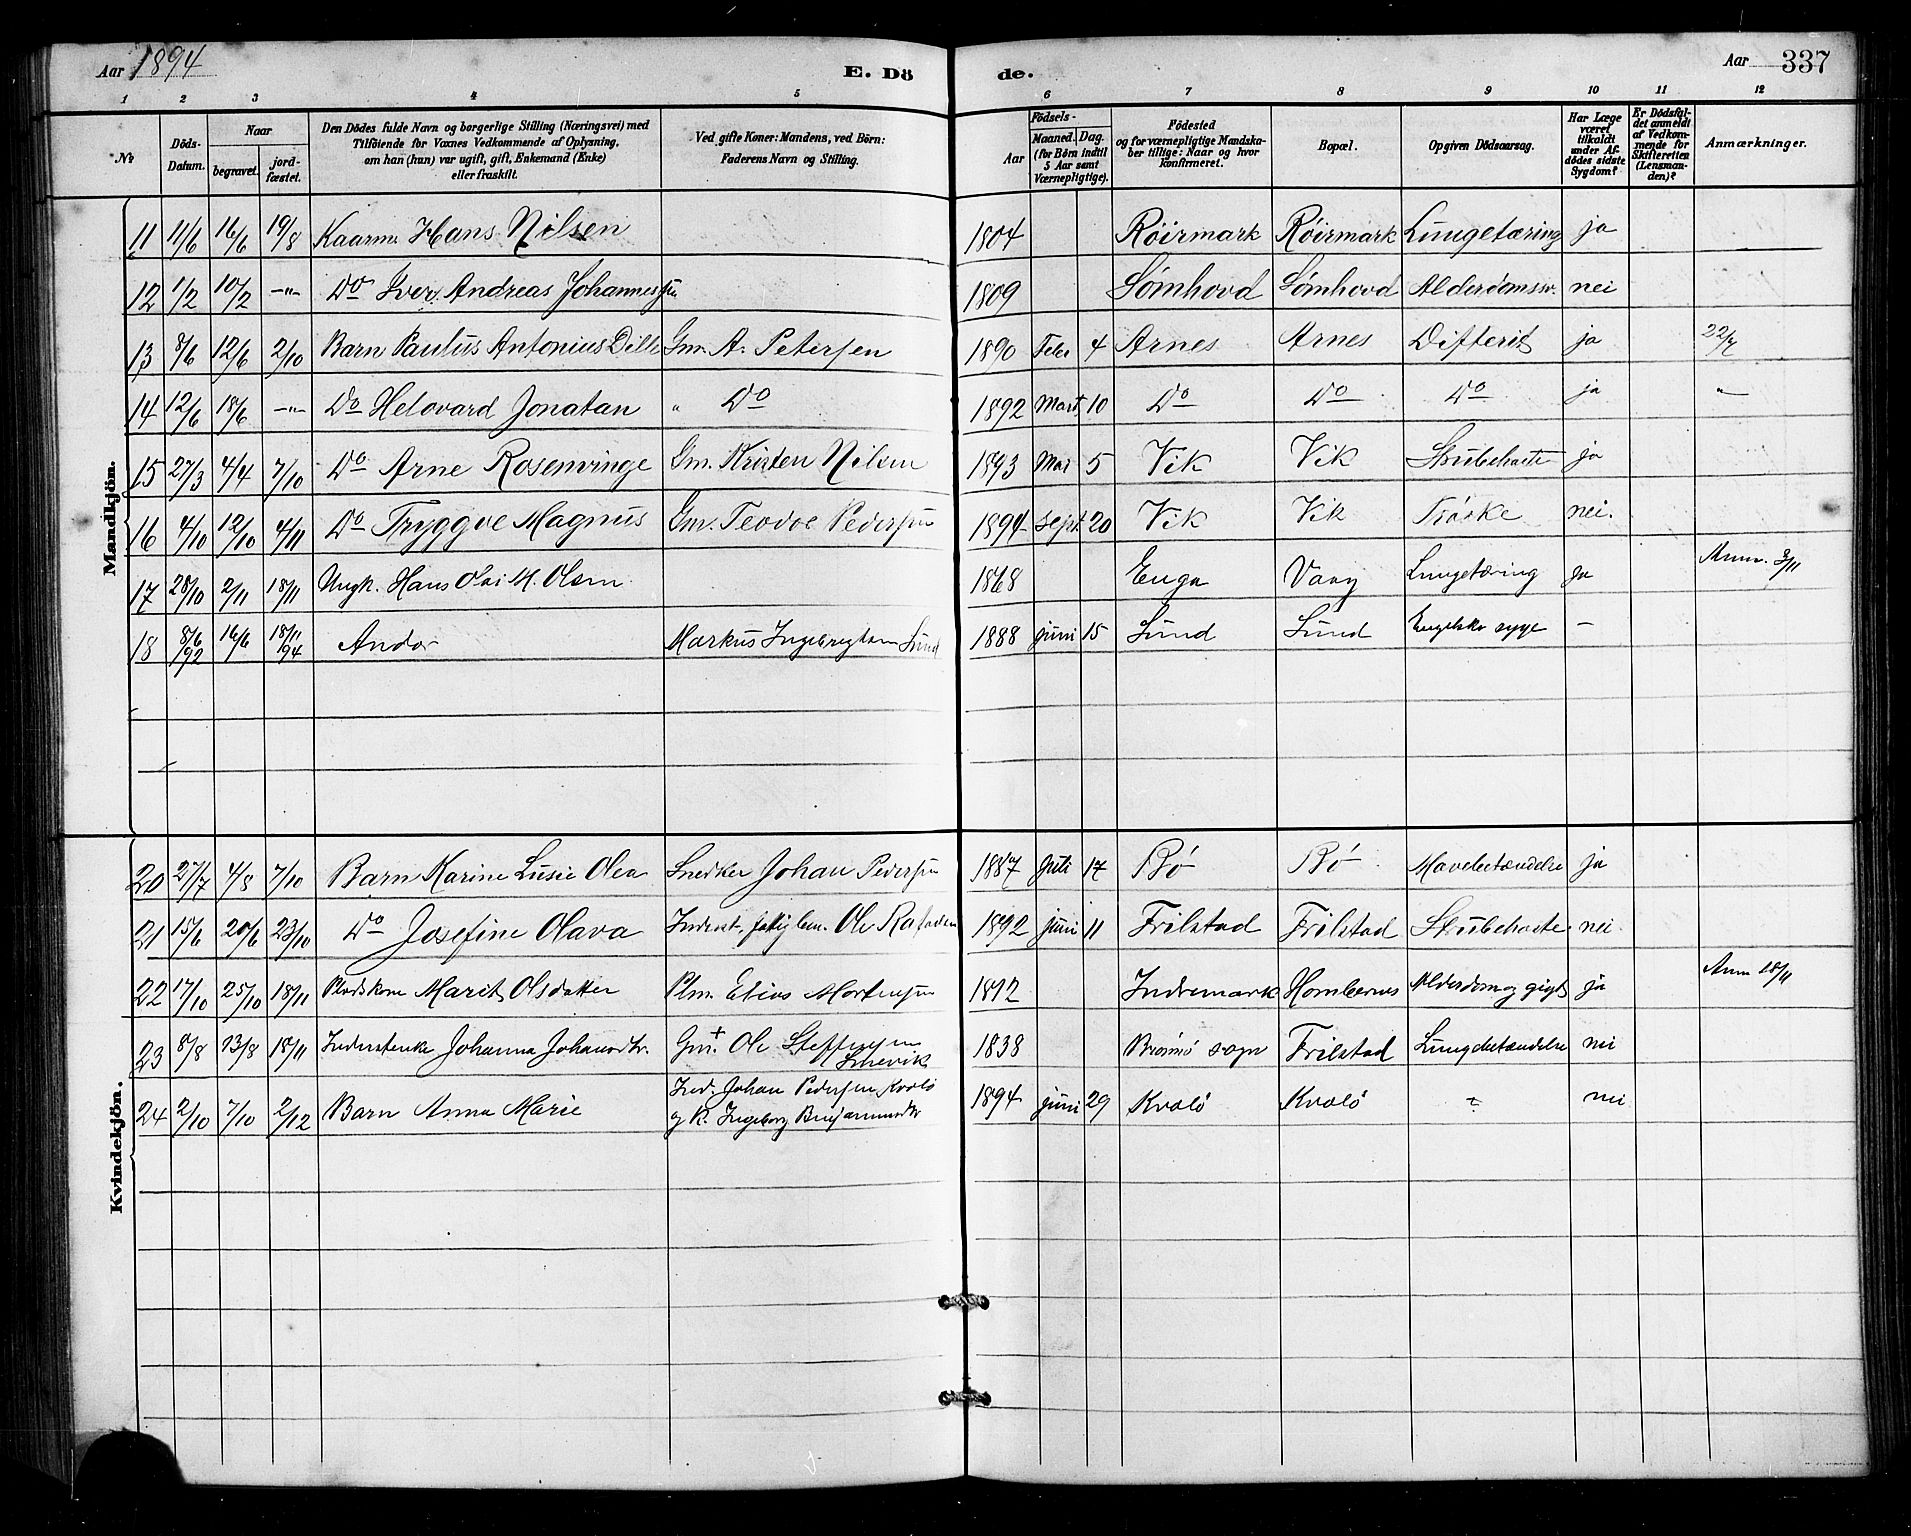 Aar 1894
E. Dö
de.
Aar 337
1 2 3 4 5 6 7 8 9 10 11 12
№
Döds-Datum.
Naar
begravet.
jord-fæstet.
Den Dödes fulde Navn og borgerlige Stilling (Næringsvei) med
Tilföiende for Voxnes Vedkommende af Oplysning,
om han (hun) var ugift, gift, Enkemand (Enke)
eller fraskilt.
Ved gifte Koner: Mandens, ved Börn:
Faderens Navn og Stilling.
Födsels-
Aar
Maaned. Dag.
(for Börn indtil
5 Aar samt
Værnepligtige).
Födested
og for værnepligtige Mandska-
ber tillige: Naar og hvor
konfirmeret.
Bopæl.
Opgiven Dödsaarsag.
Har Læge
været
tilkaldt
under Af-
dödes sidste
Sygdom?
Er Dödsfal-
det anmeldt
af Vedkom-
mende for
Skifteretten
(Lensman-
den)?
Anmærkninger.
Mandkjön.
11 11/6 16/6 19/8 Kaarm Hans Nilsen 1804 Röirmark Röirmark Lungetæring ja
12 1/2 10/2 -"- Do Iver Andreas Johannessen 1809 Sömhovd Sömhovd Alderdomssv. nei
13 8/6 12/6 2/10 Barn Paulus Antonius Dille Gm. A. Petersen 1890 Febr 4 Arnes Arnes Difterit ja 22/7
14 12/6 18/6 -"- Do Helovard Jonatan " Do 1892 Marts 10 Do Do Do ja "
15 27/3 4/4 7/10 Do Arne Rosenvinge Gm. Kristen Nilsen 1893 Mai 5 Vik Vik Strubehoste ja
16 4/10 12/10 4/11 Do Tryggve Magnus Gm. Teodor Pedersen 1894 Sept 20 Vik Vik Tröske nei.
17 28/10 2/11 18/11 Ungk. Hans Olai M. Olsen 1868 Enga Vaag Lungetæring ja Anm. 3/11
18 8/6 /92 16/6 18/11 /94 Andor Markus Ingebrigtsen Sund 1888 juni 15 Sund Sund Engelske syge –
Kvindekjön.
20 27/7 4/8 7/10 Barn Karine Lusie Olea Snedker Johan Pedersen 1887 Juli 17 Bö Bö Mavebetændelse ja
21 15/6 20/6 23/10 Do Josefine Olava Inderst, fattiglem. Ole 1892 juni 11 Frilstad Frilstad Strubehoste nei
22 17/10 25/10 18/11 Pladskone Marit Olsdatter Plm. Elias Mortensen 1812 Indremark Hombornes Alderdom og gigt ja Anm 18/11
23 8/8 13/8 18/11 Inderstenke Johanna Johansdtr. Gm. + Ole Steffensen
24 2/10 7/10 2/12 Barn Anna Marie Ind. Johan Pedersen Kvalö
og K. Ingeborg Benjaminsdtr
1838 Brönnö sogn Frilstad Lungebetændelse nei
1894 juni 29 Kvalö Kvalö ? nei